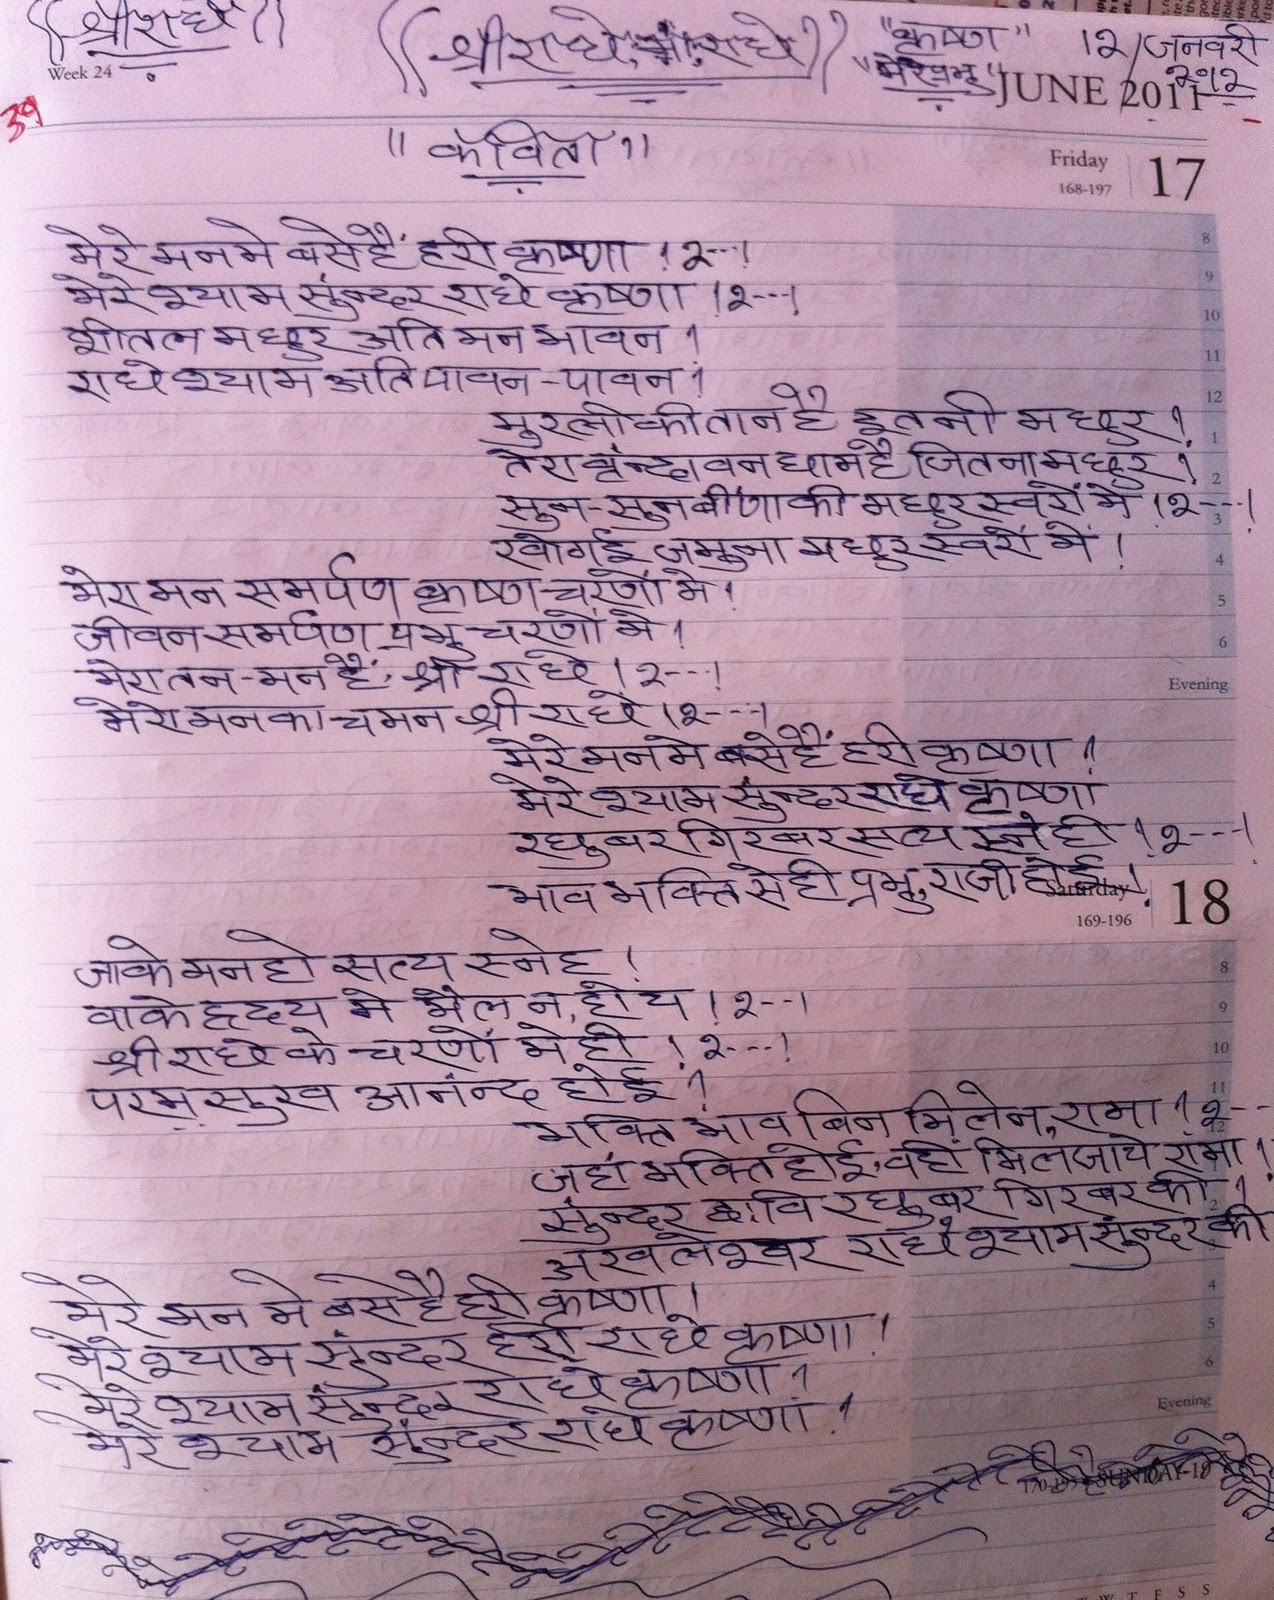 ((श्रीराधे))
((श्रीराधे, श्री राधे))
"कृष्ण"
"मेरे प्रभु"
12/जनवरी
२०१२
Week 24
JUNE 2011
39
"कविता"
Friday
168-197
17
मेरे मन मे बसे हैं हरी कृष्णा ! २---!
मेरे श्याम सुंन्दर राधे कृष्णा ! २---!
शीतल मधुर अति मन भावन !
राधे श्याम अति पावन-पावन !
मुरली की तान है इतनी मधुर !
तेरा बृंन्दावन धाम है जितना मधुर !
सुन-सुन बीणा की मधुर स्वरों मे ! २---!
खो गई जमुना मधुर स्वरों में !
मेरा मन समर्पण कृष्ण-चरणों मे !
जीवन समर्पण प्रभु चरणों मे !
मेरा तन-मन है, श्री राधे ! २---!
मेरे मन का चमन श्री राधे ! २---!
मेरे मन मे बसे हैं हरी कृष्णा !
मेरे श्याम सुंन्दर राधे कृष्णा
रघुबर गिरबर सत्य स्नेही ! २---!
भाव भक्ति से ही प्रभु, राजी होई !
Saturday
169-196
18
जाके मन हो सत्य स्नेह !
वाके हृदय मे मैल न, होय ! २---!
श्री राधे के चरणों मे ही ! २---!
परम् सुख आनंन्द होई !
भक्ति भाव बिन मिले न, रामा ! २---
जहां भक्ति होई, वहीं मिल जाये रामा !
सुंन्दर छवि रघुबर गिरबर की !
अखलेश्वर राधे श्याम सुंन्दर की
मेरे मन मे बसे है हरी कृष्णा !
मेरे श्याम सुंन्दर हरी राधे कृष्णा !
मेरे श्याम सुंन्दर राधे कृष्णा !
मेरे श्याम सुंन्दर राधे कृष्णा !
8
9
10
11
12
1
2
3
4
5
6
Evening
8
9
10
11
12
2
3
4
5
6
Evening
SUNDAY-19
T F S S